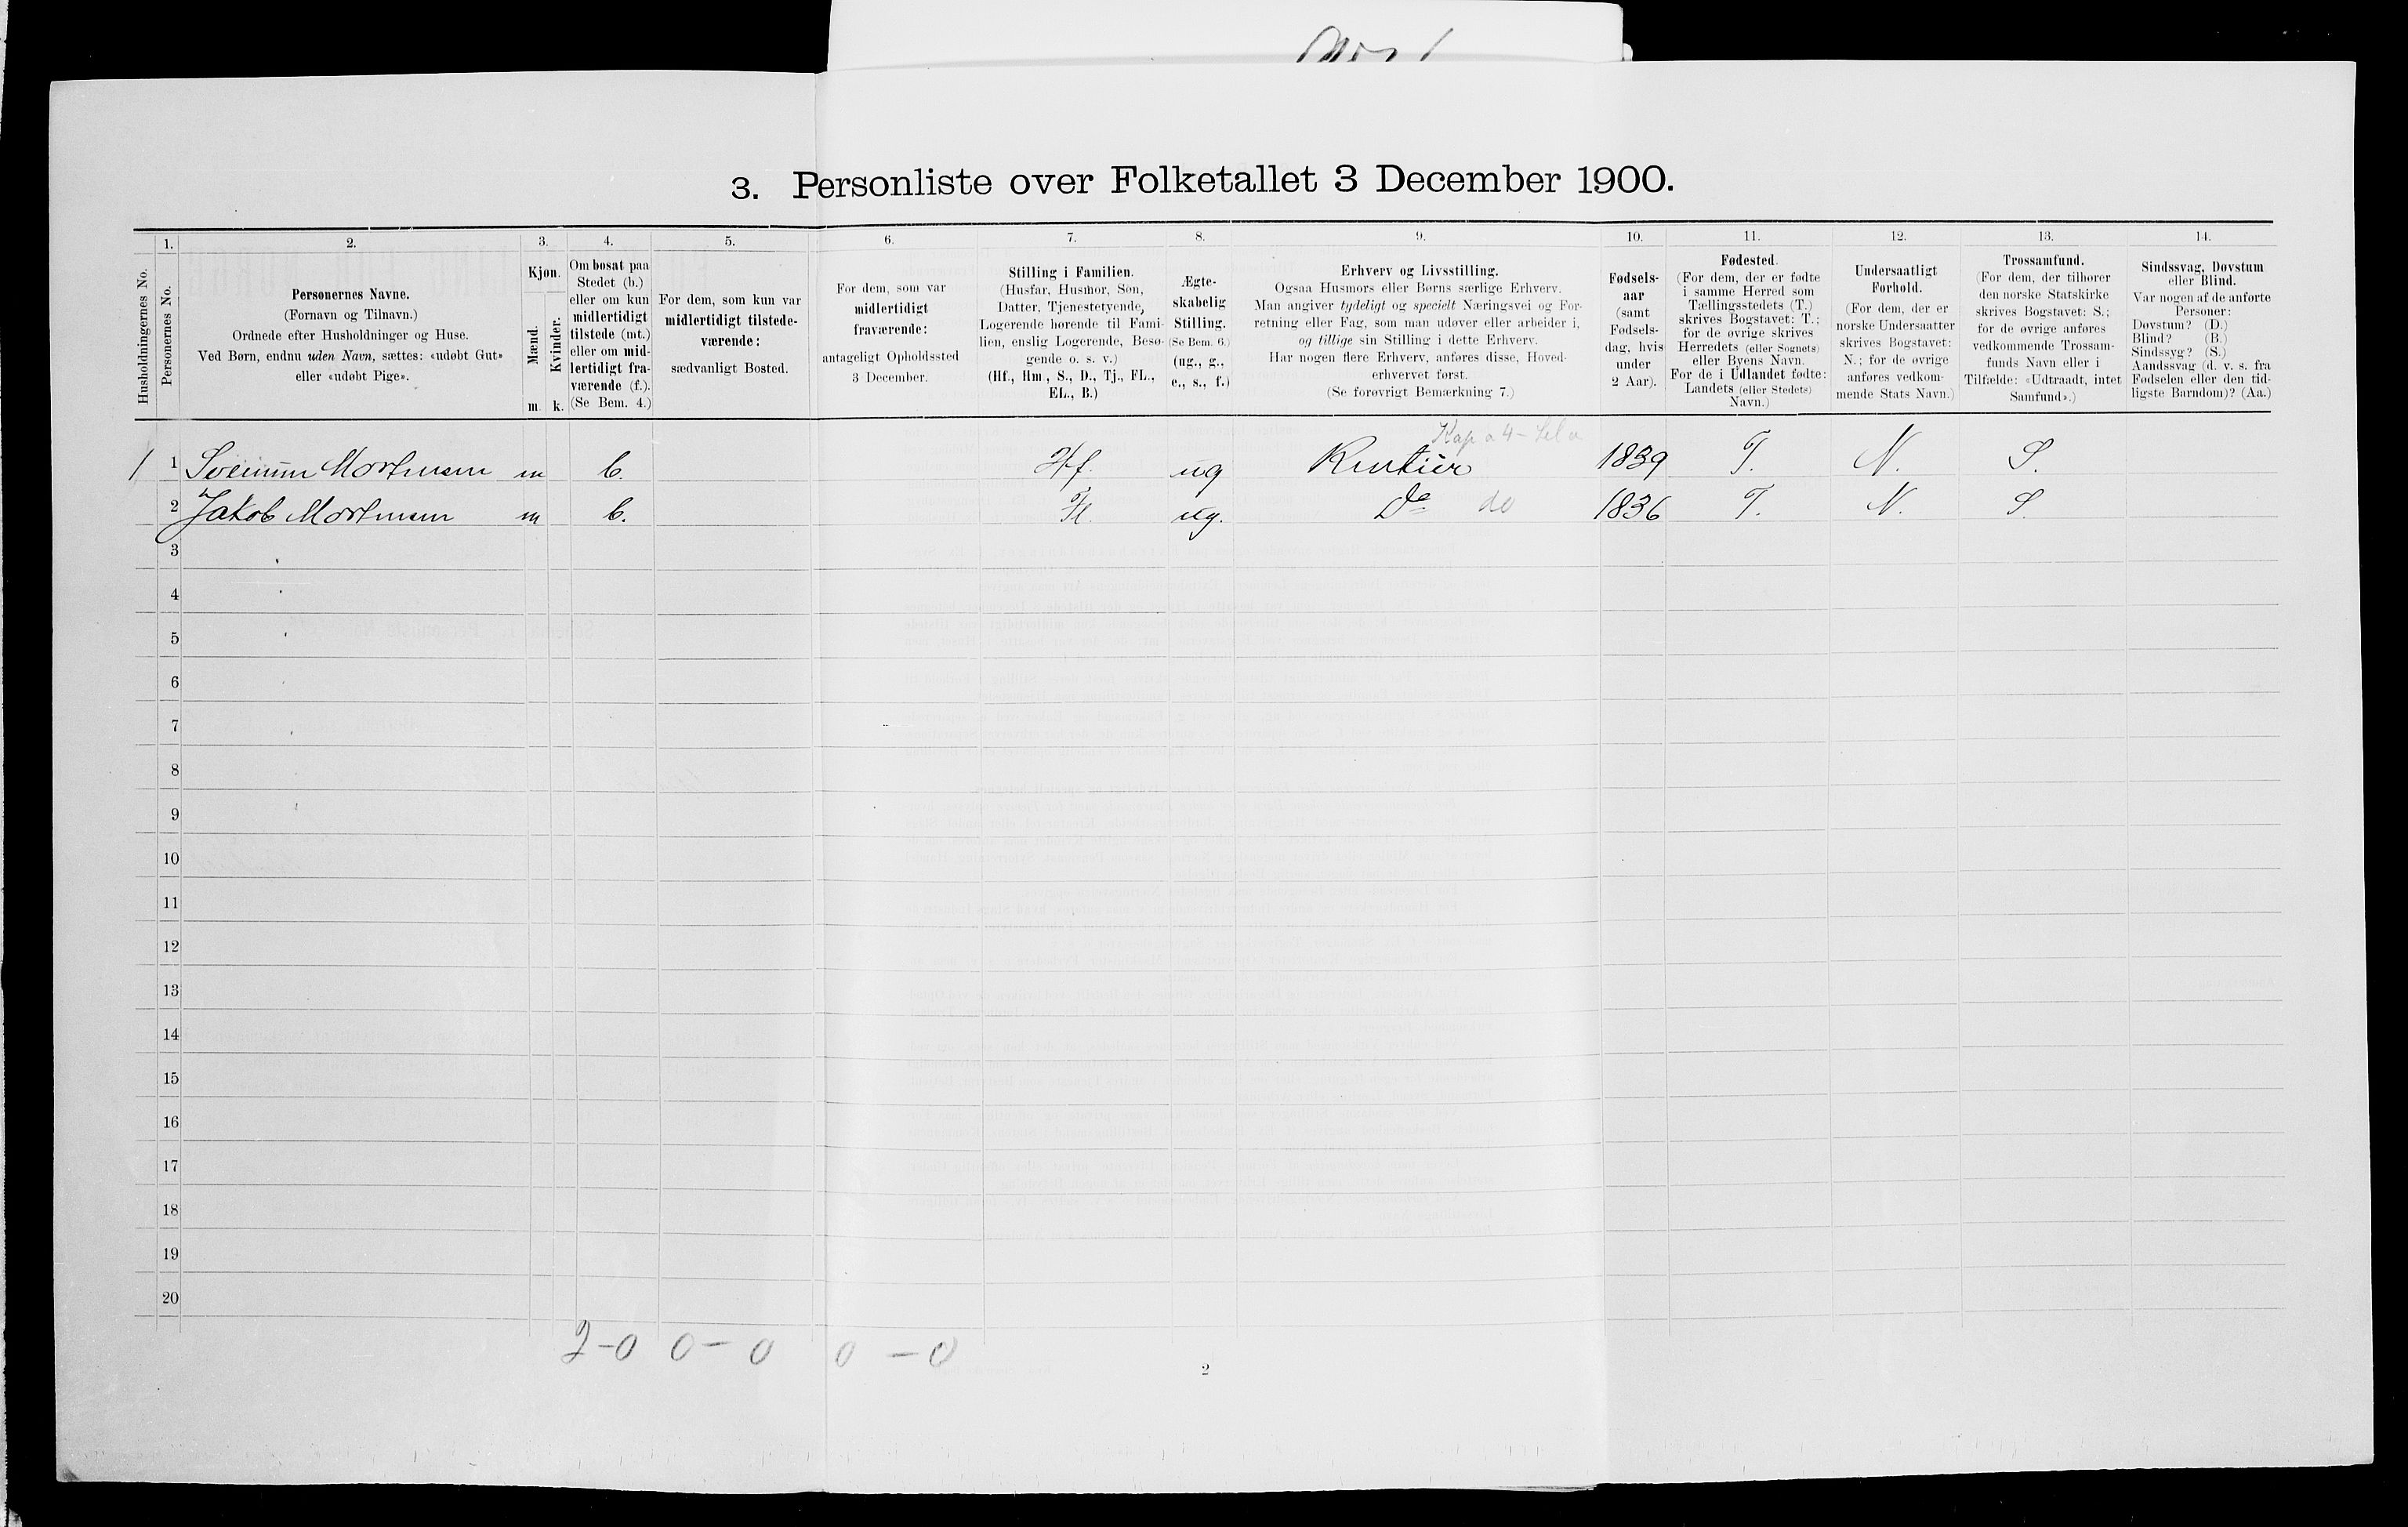 3. Personliste over Folketallet 3 December 1900.
Husholdningernes No.
1.
Personernes No.
2.
Personernes Navne.
(Fornavn og Tilnavn.)
Ordnede efter Husholdninger og Huse.
Ved Børn, endnu uden Navn, sættes: «udøbt Gut»
eller «udøbt Pige».
3.
Kjøn.
Mænd.
Kvinder.
m. k.
4.
Om bosat paa
Stedet (b.)
eller om kun
midlertidigt
tilstede (mt.)
eller om mid-
lertidigt fra-
værende (f.).
(Se Bem. 4.)
5.
For dem, som kun var
midlertidigt tilstede-
værende:
sædvanligt Bosted.
6.
For dem, som var
midlertidigt
fraværende:
antageligt Opholdssted
3 December.
7.
Stilling i Familien.
(Husfar, Husmor, Søn,
Datter, Tjenestetyende,
Logerende hørende til Fami-
lien, enslig Logerende, Besø-
gende o. s. v.)
(Hf., Hm., S., D., Tj., FL.,
EL., B.)
8.
Ægte-
skabelig
Stilling.
(Se Bem. 6.)
(ug., g.,
e., s., f.)
9.
Erhverv og Livsstilling.
Ogsaa Husmors eller Børns særlige Erhverv.
Man angiver tydeligt og specielt Næringsvei og For-
retning eller Fag, som man udøver eller arbeider i,
og tillige sin Stilling i dette Erhverv.
Har nogen flere Erhverv, anføres disse, Hoved-
erhvervet først.
(Se forøvrigt Bemærkning 7.)
10.
Fødsels-
aar
(samt
Fødsels-
dag, hvis
under
2 Aar).
11.
Fødested.
(For dem, der er fødte
i samme Herred som
Tællingsstedets (T.)
skrives Bogstavet: T.;
for de øvrige skrives
Herredets (eller Sognets)
eller Byens Navn.
For de i Udlandet fødte:
Landets (eller Stedets)
Navn.)
12.
Undersaatligt
Forhold.
(For dem, der er
norske Undersaatter
skrives Bogstavet:
N.; for de øvrige
anføres vedkom-
mende Stats Navn.)
13.
Trossamfund.
(For dem, der tilhører
den norske Statskirke
skrives Bogstavet: S.;
for de øvrige anføres
vedkommende Trossam-
funds Navn eller i
Tilfælde: «Udtraadt, intet
Samfund».)
14.
Sindssvag, Døvstum
eller Blind.
Var nogen af de anførte
Personer:
Døvstum? (D.)
Blind? (B.)
Sindssyg? (S.)
Aandssvag (d. v. s. fra
Fødselen eller den tid-
ligste Barndom)? (Aa.)
1 1 Mortensen m b. Hf. ug Rentier 1839 T. N. S.
2 Jakob Mortensen m b. Fl. ug. Do do 1836 T. N. S.
3
4
5
6
7
8
9
10
11
12
13
14
15
16
17
18
19
20
2-0 0-0 0-0
2